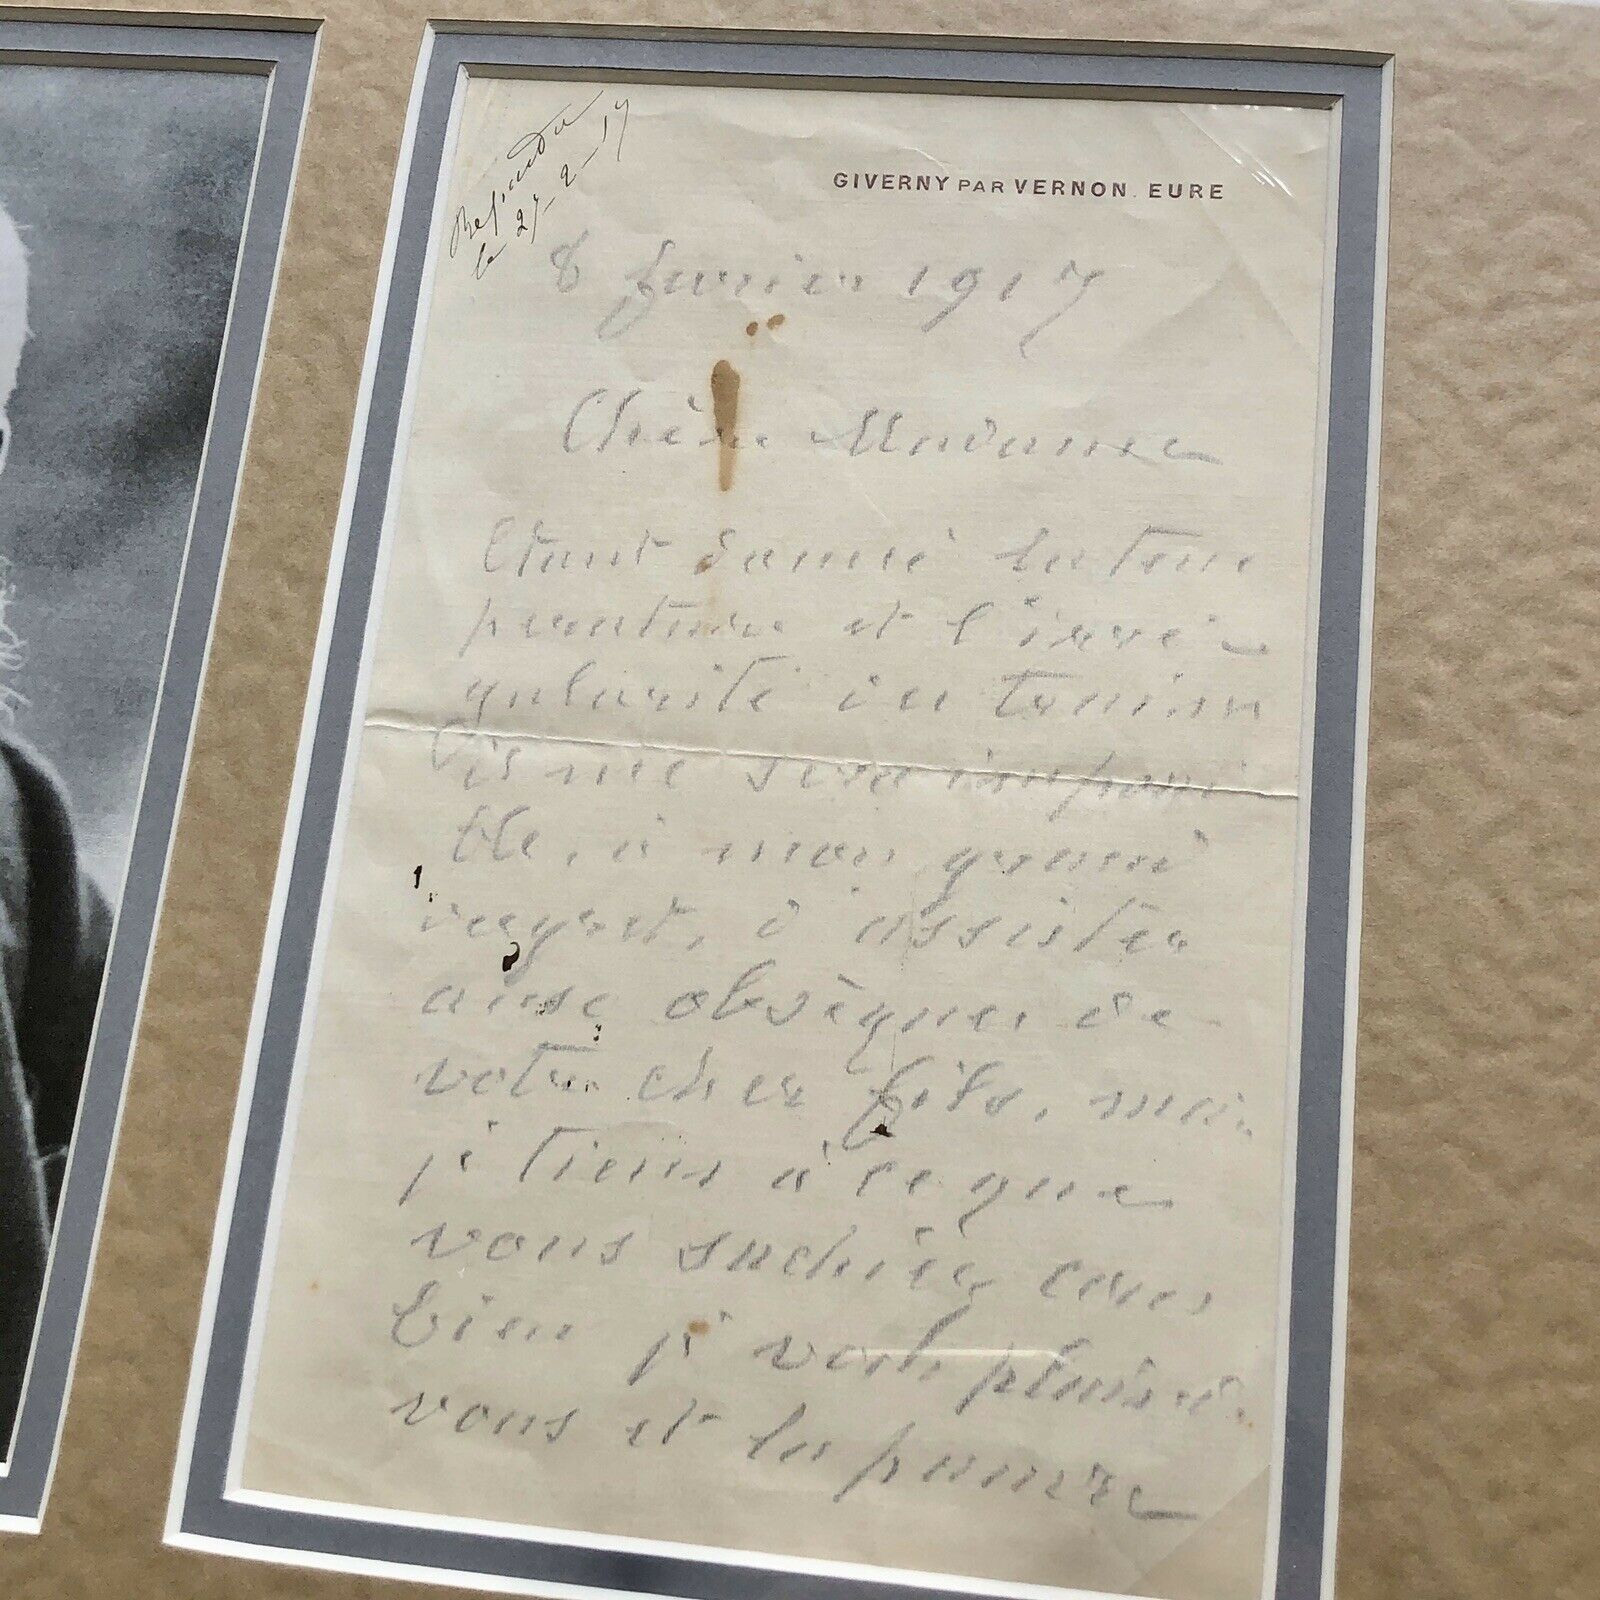 Repondu
le 27-2-17
GIVERNY PAR VERNON. EURE
8 fevrier 1917
Chère Madame
Etant donné la tem
perature et l'irré-
gularité des trains
il me sera impossi
ble, à mon grand
regret, d'assister
aux obsèques de
votre cher fils, mais
je tiens à ce que
vous sachiez com
bien je vous plains
vous et la pauvre